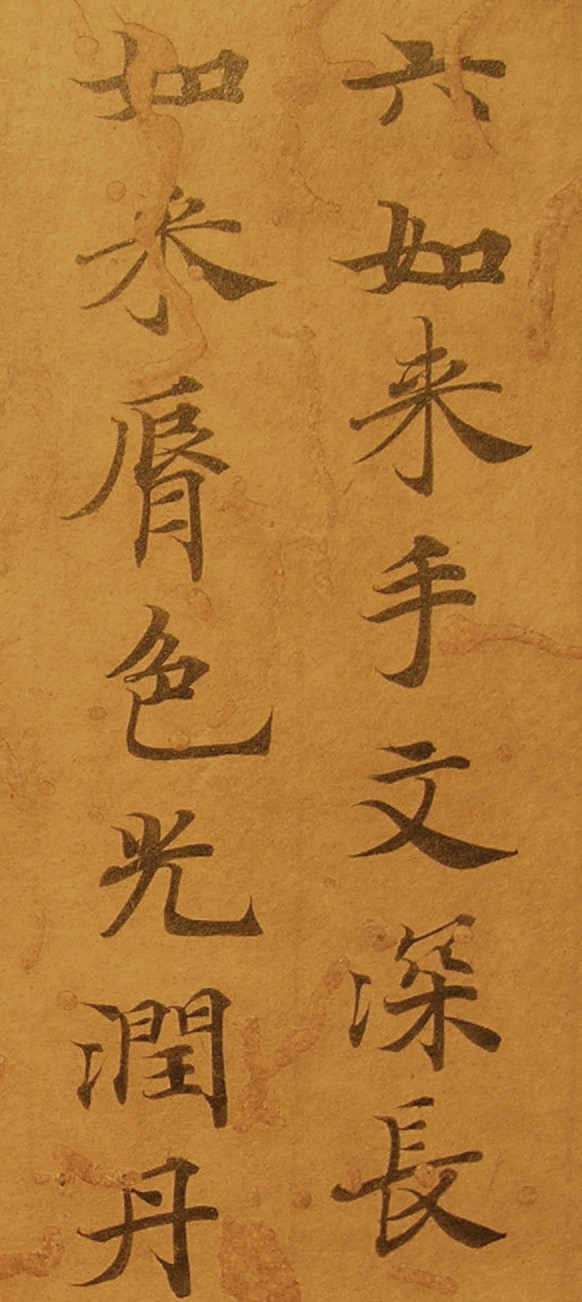 六如来手文深長
如来脣色光潤丹